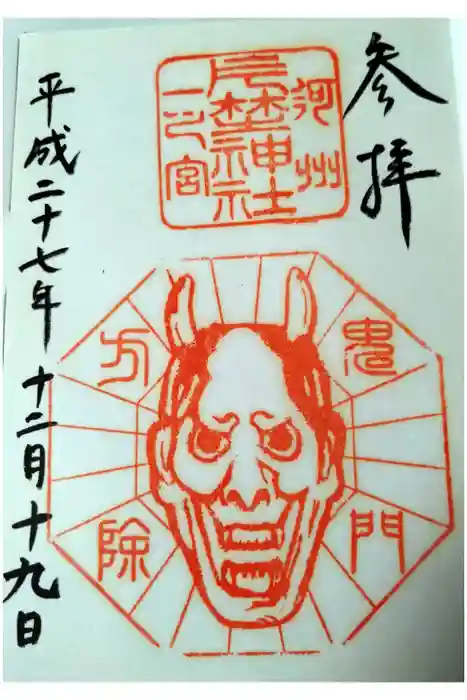 参拝
河州
片埜神社
一乃宮
鬼門
方除
平成二十七年十二月十九日